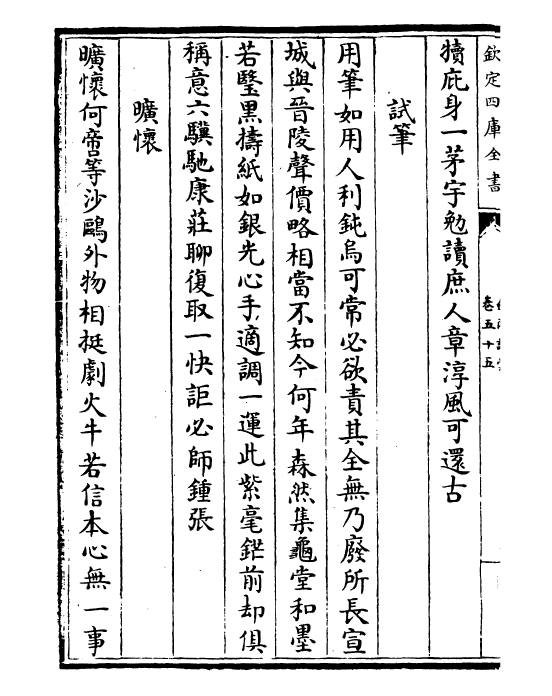 欽定四庫全書
卷五十五
犢庇身一茅宇勉讀庶人章淳風可還古
試筆
用筆如用人利鈍烏可常必欲責其全無乃廢所長宣
城與晉陵聲價略相當不知今何年森然集龜堂和墨
若鷖黑擣紙如銀光心手適調一運此紫毫鋩前却俱
稱意六驥馳康莊聊復取一快詎必師鍾張
曠懷
曠懷何啻等沙鷗外物相挺劇火牛若信本心無一事